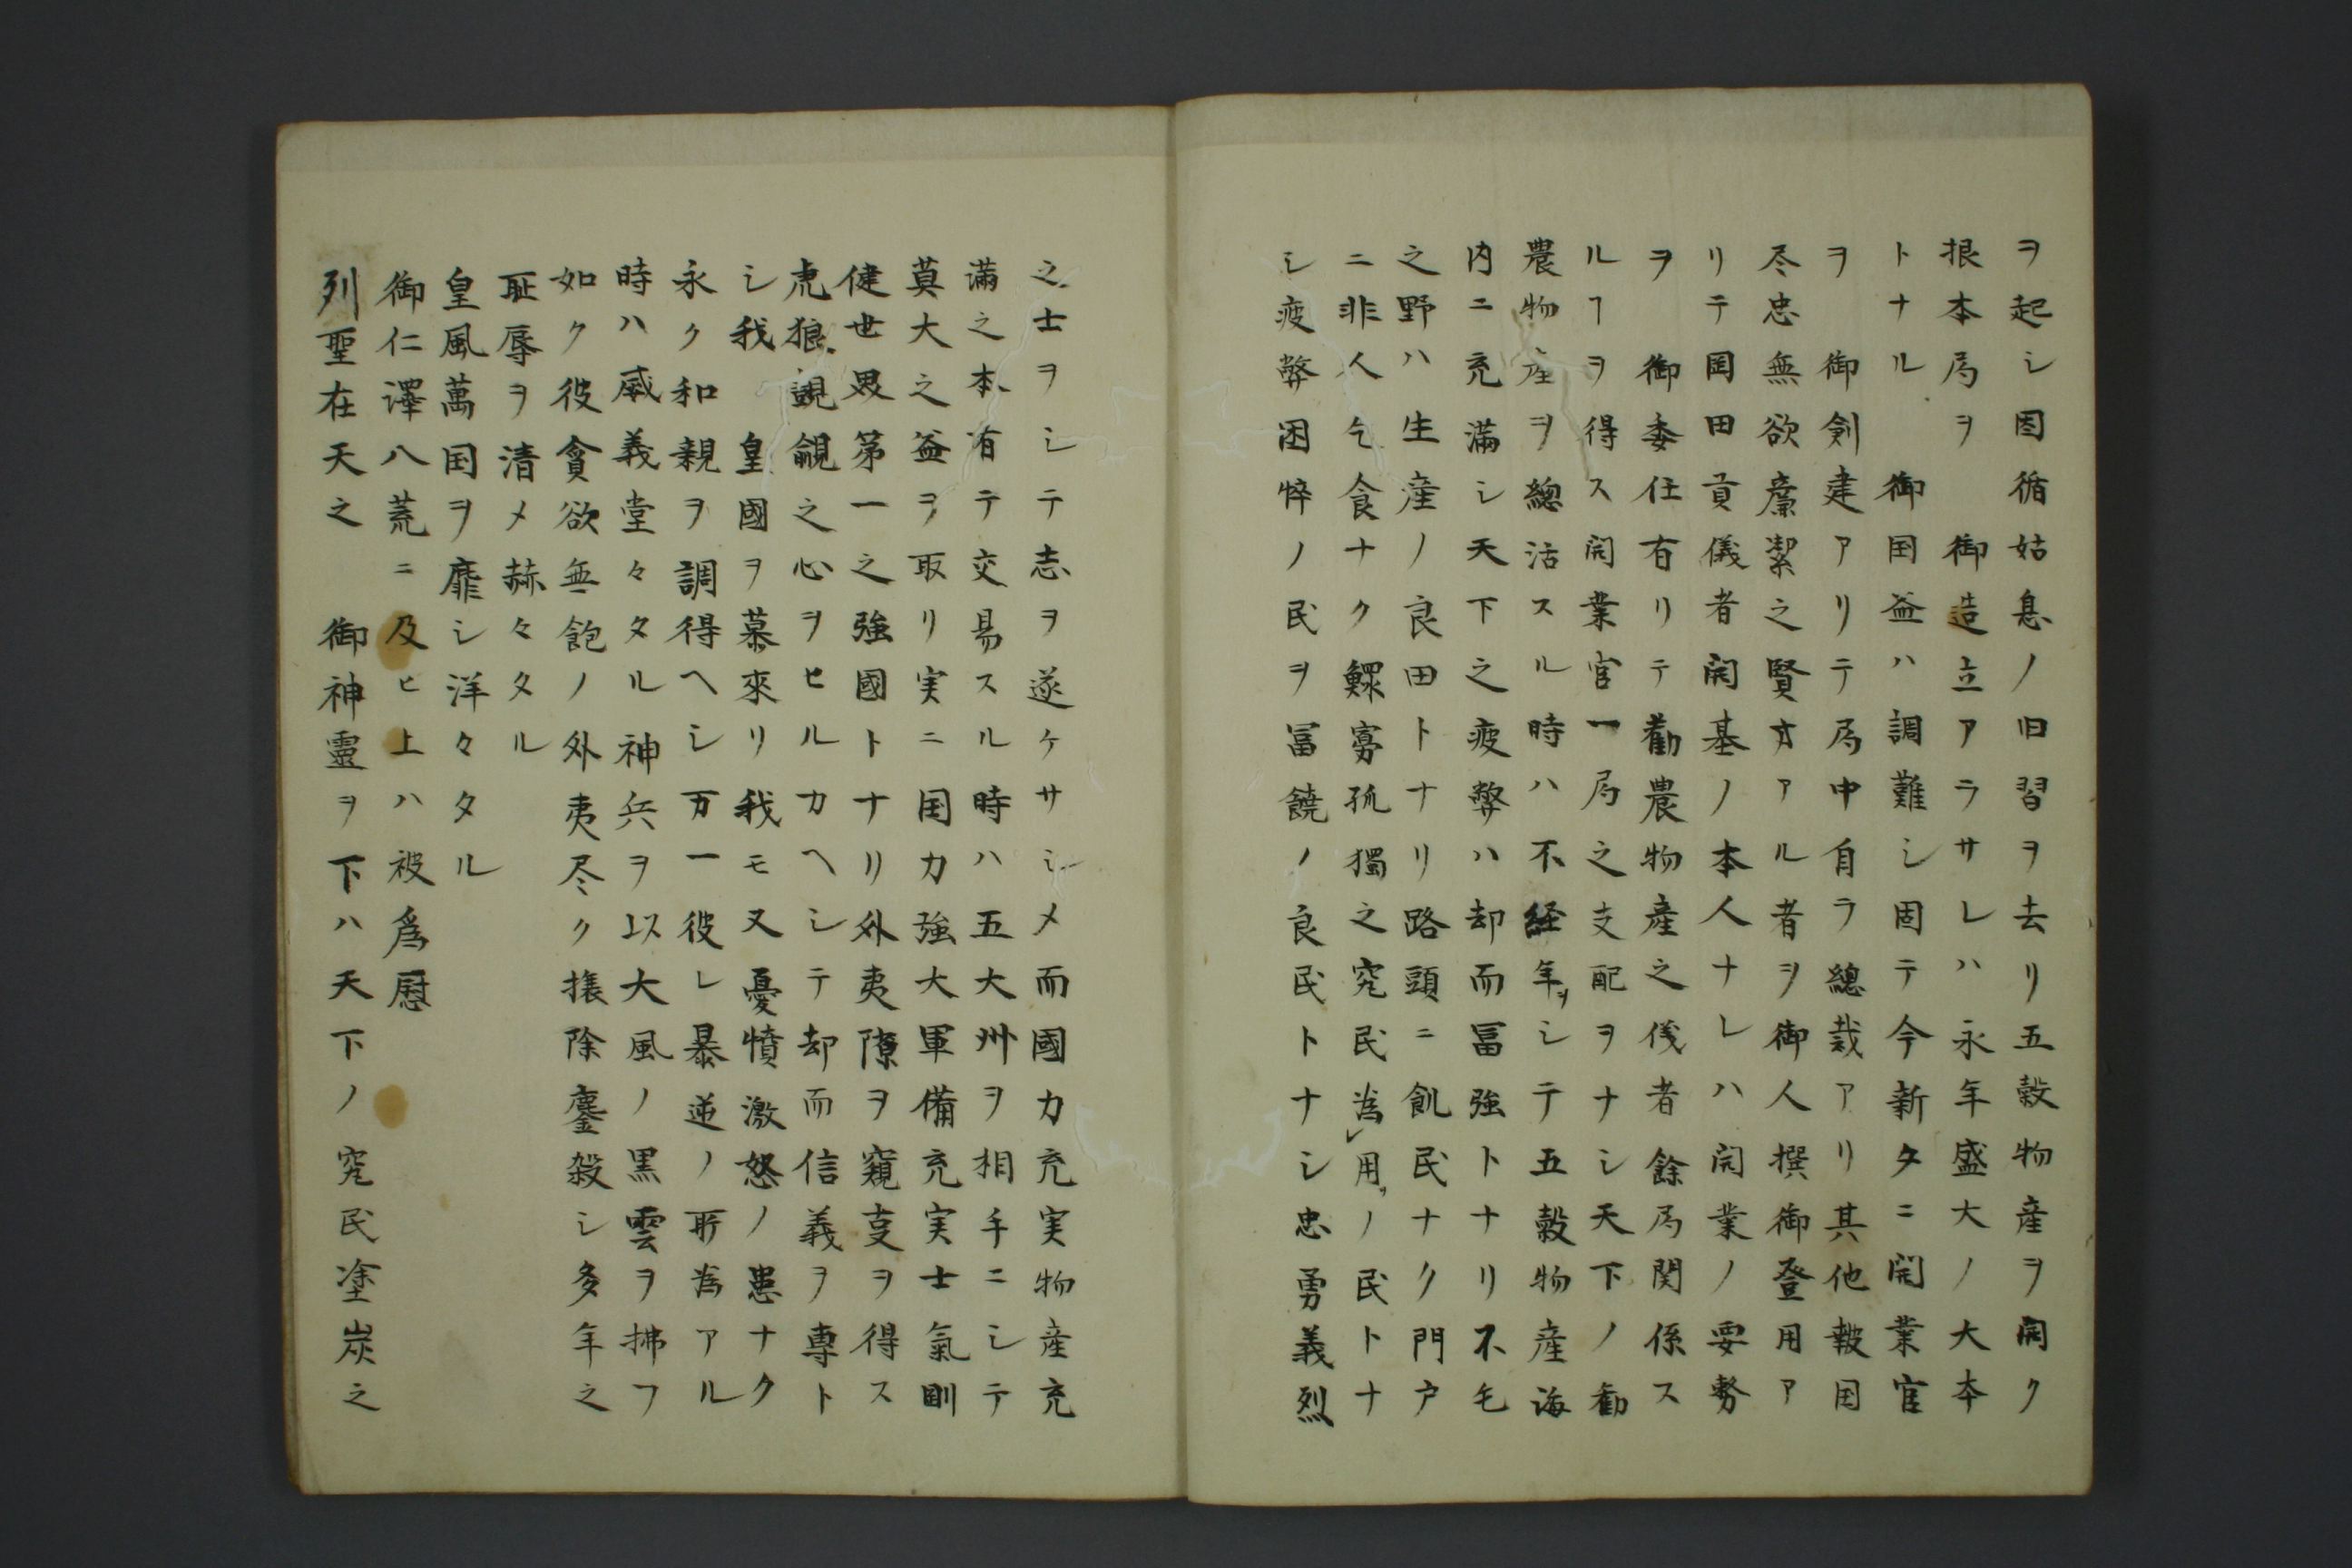 ヲ起シ因循姑息ノ旧習ヲ去リ五穀物産ヲ開ク
根本局ヲ　御造立アラサレハ永年盛大ノ大本
トナル　御国益ハ調難シ固テ今新タニ開業官
ヲ　御創建アリテ局中自ラ總裁アリ其他報国
尽忠無欲廉潔之賢才アル者ヲ御人撰御登用ア
リテ岡田貢儀者開基ノ本人ナレハ開業ノ要務
ヲ　御委任有リテ勸農物産之儀者餘局関係ス
ルヿヲ得ス開業官一局之支配ヲナシ天下ノ勧
農物産ヲ總活スル時ハ不経年ヲシテ五穀物産海
内ニ充満シ天下之疲弊ハ却而冨強トナリ不毛
之野ハ生産ノ良田トナリ路頭ニ飢民ナク門戸
ニ非人乞食ナク鰥寡孤獨之窮民為レ用ヲノ民トナ
シ疲弊困悴ノ民ヲ冨饒ノ良民トナシ忠勇義烈
之士ヲシテ志ヲ遂ケサシメ而國力充実物産充
満之本有テ交易スル時ハ五大州ヲ相手ニシテ
莫大之益ヲ取リ実ニ国力強大軍備充実士氣剛
健世界第一之強國トナリ外夷隙ヲ窺叓ヲ得ス
虎狼覬覦之心ヲヒルカヘシテ却而信義ヲ専ト
シ我　皇國ヲ慕來リ我モ又憂憤激怒ノ患ナク
永ク和親ヲ調得ヘシ万一彼レ暴逆ノ所為アル
時ハ威義堂々タル神兵ヲ以大風ノ黒雲ヲ拂フ
如ク彼貪欲無飽ノ外夷尽ク攘除鏖殺シ多年之
耻辱ヲ清メ赫々タル
皇風萬国ヲ靡シ洋々タル
御仁澤八荒ニ及ヒ上ハ被為慰
列聖在天之　御神靈ヲ下ハ天下ノ窮民塗炭之